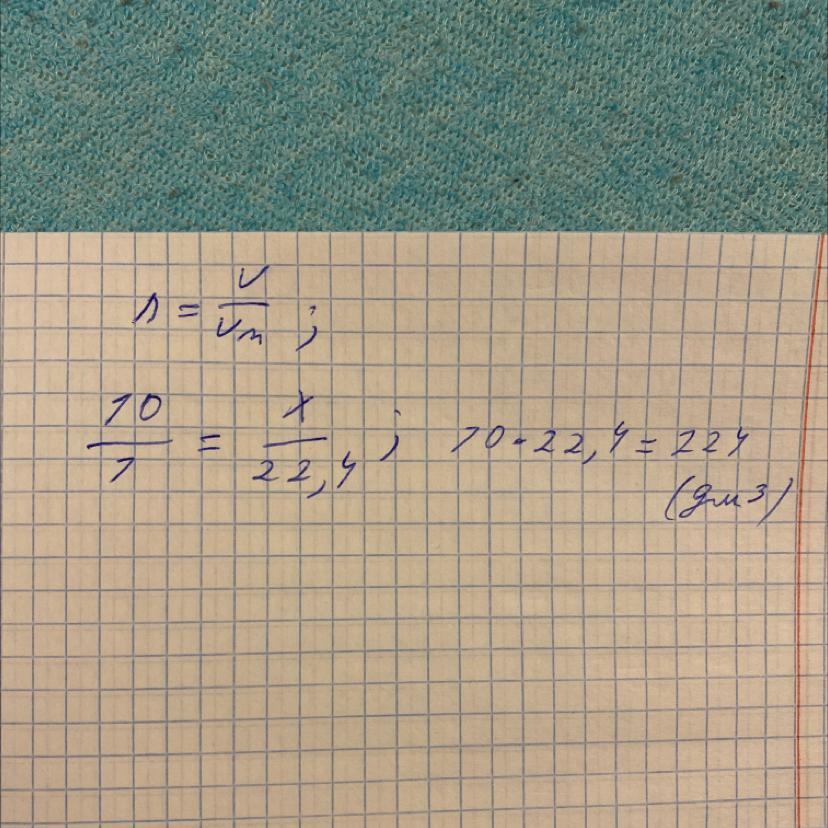 n = V/Vm ;
10/1 = x/22,4 ; 10·22,4 = 224
(дм3)